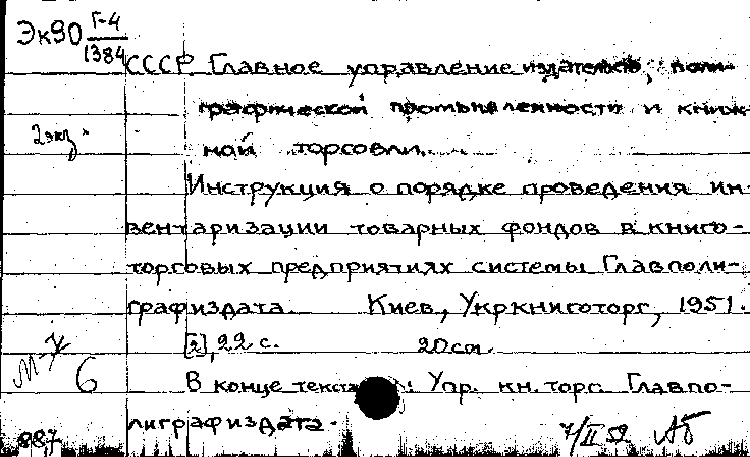 Эк90 Г-4
1384
СССР Главное управление издательств, поли-
графической промышленности и книж-
2 экз.
ной торговли.
Инструкция о порядке проведения ин-
вентаризации товарных фондов в книго-
торговых предприятиях системы Главполи-
графиздата. Киев, Укркниготорг, 1951.
[2], 22 с. 20 см.
М-
6
В конце текста: Упр. кн. торг. Главпо-
лиграфиздата.
887
7/II 52 АБ